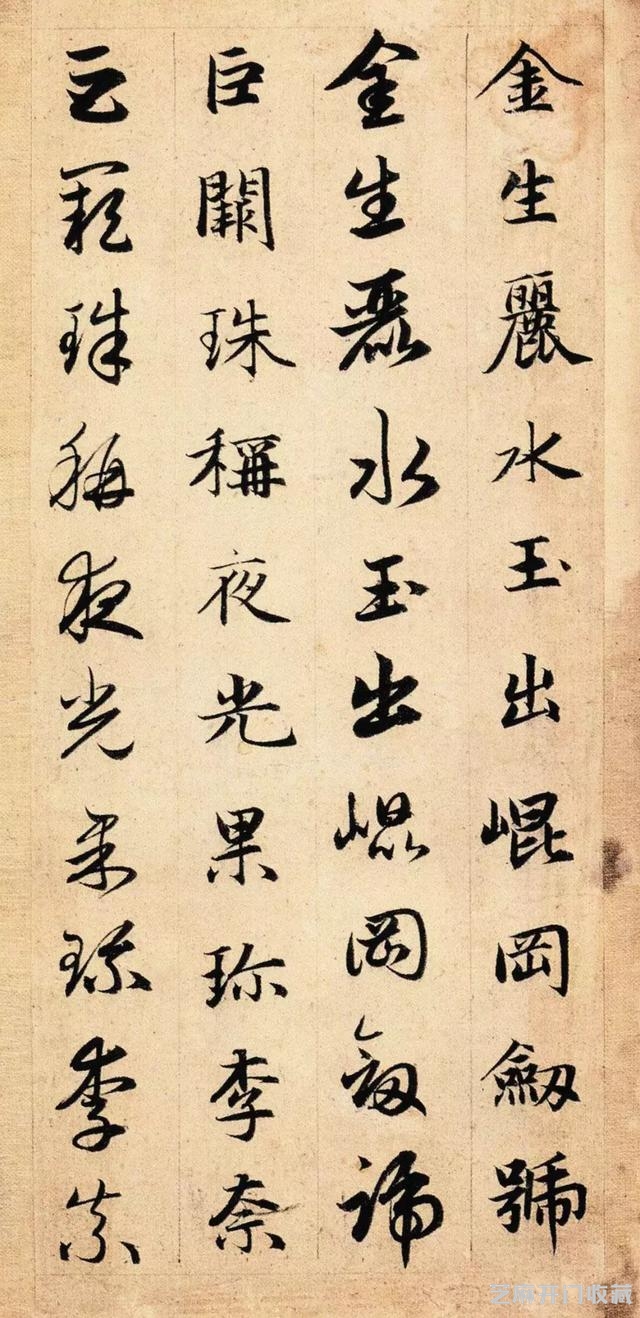 金生麗水玉出崐岡劒號
金生麗水玉出崐岡劒號
巨闕珠稱夜光果珎李柰
巨闕珠稱夜光果珎李柰
芝麻开门收藏